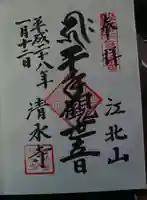 奉拝
江北山
千手觀世音
清水寺
平成二十八年
一月十二日